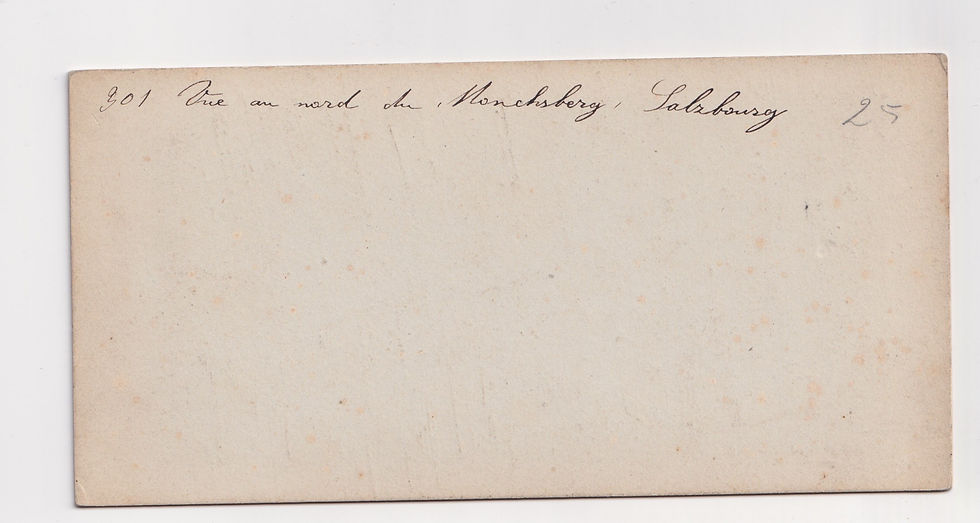 301 Vue au nord du Monchsberg, Salzbourg 25